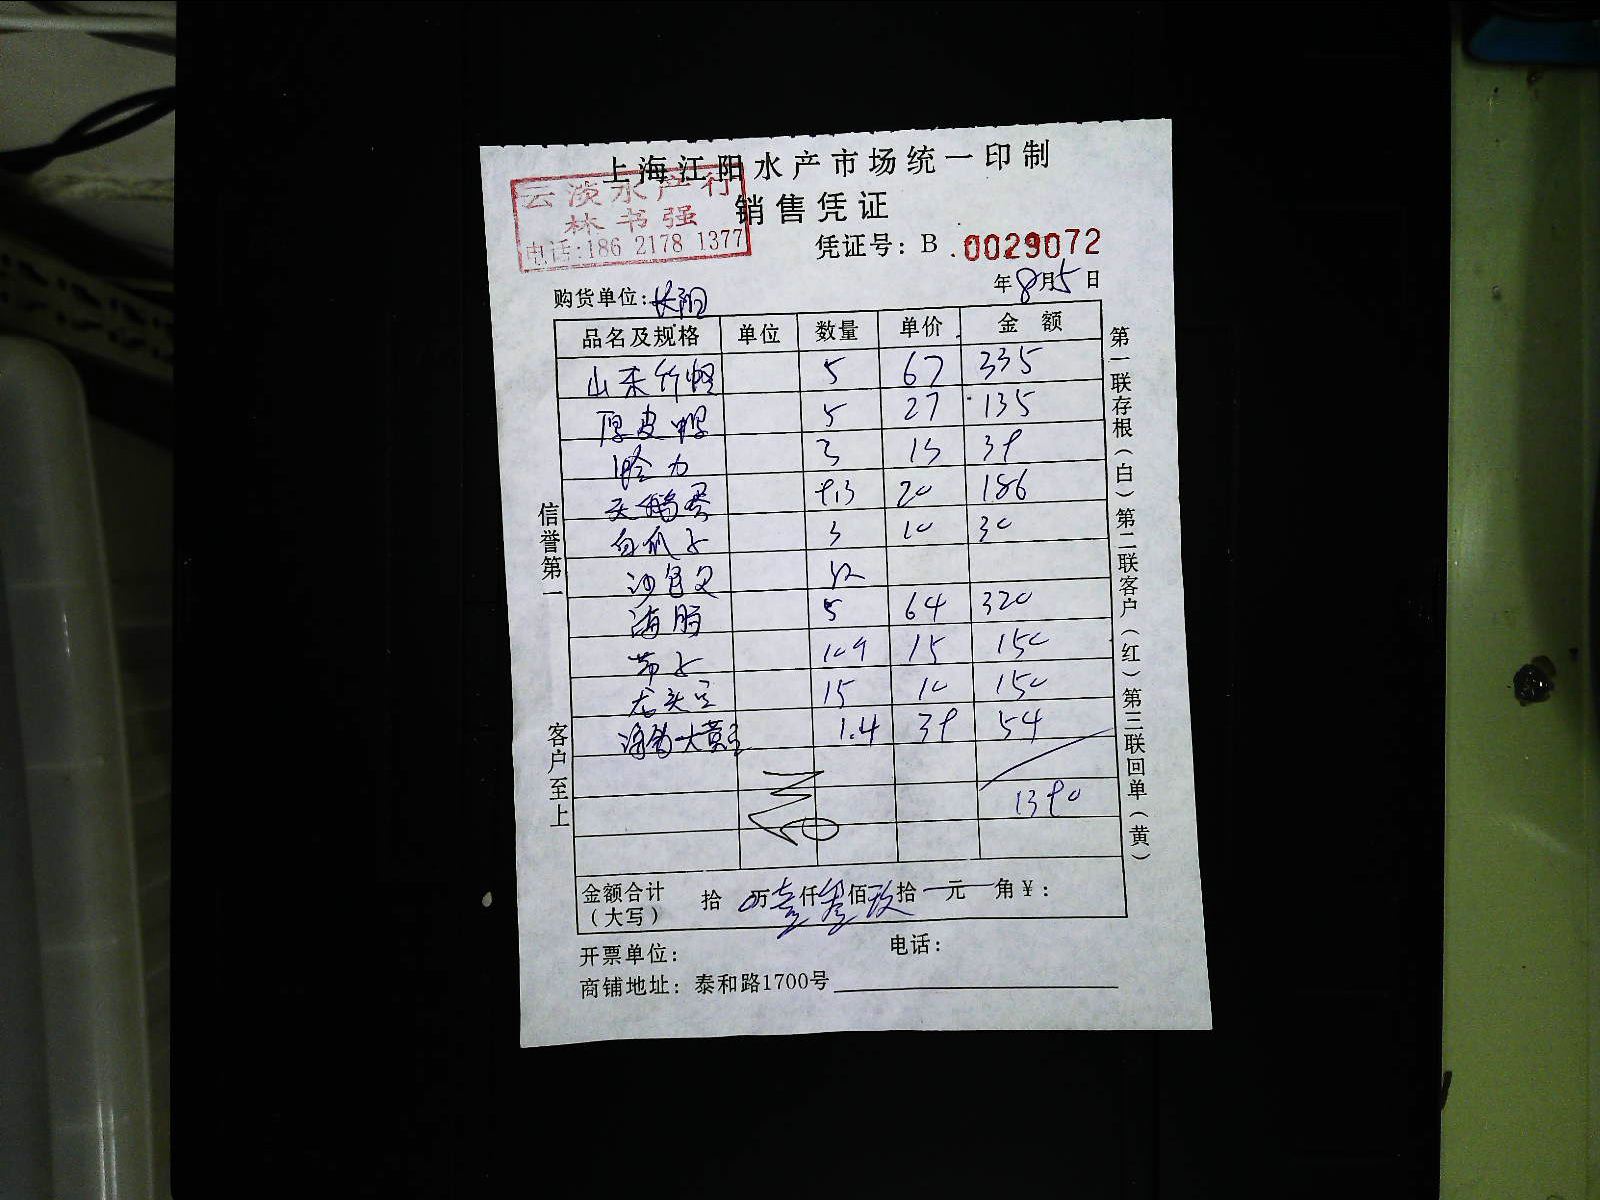 上海江阳水产市场统一印制
云淡水产行
林书强
电话:186 2178 1377
销售凭证
凭证号：B .0029072
购货单位：长阳
年8月5日
品名及规格 单位 数量 单价 金额
山东竹蛏 5 67 335
厚皮 5 27 135
蛤力 3 13 39
天鹅蛋 9.3 20 186
白瓜子 3 10 30
沙包
海肠 5 64 320
带子 15 150
龙头 15 10 150
海 大黄 1.4 39 54
1390
金额合计（大写） 拾 万壹仟叁佰玖拾 元 角￥：
开票单位： 电话：
商铺地址：泰和路1700号
信誉第一 客户至上
第一联存根（白）第二联客户（红）第三联回单（黄）